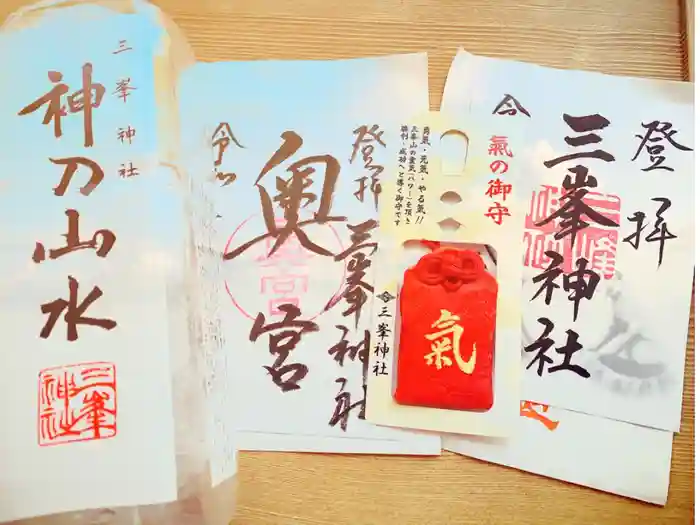 三峯神社
神刀山水
三峯
神社
登拝
三峯神社
奥宮
令和
奥宮
勇氣・元氣・やる氣!!
三峯山の霊氣「パワー」を頂き
勝利・成功へと導く御守です
氣の御守
氣
三峯神社
登拝
三峯神社